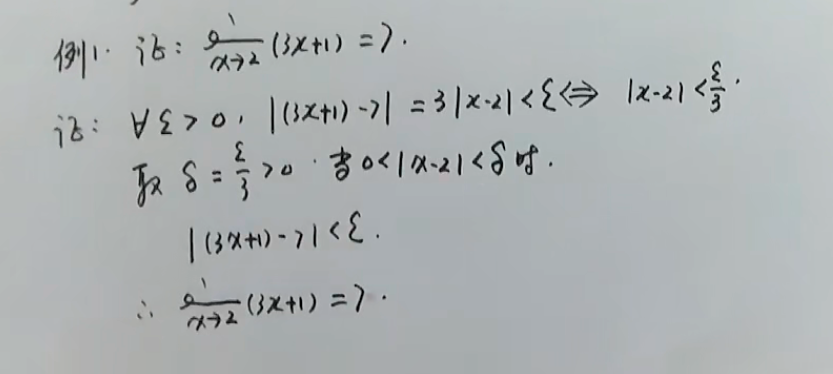 例1. 证: lim x→2 (3x+1) = 7.
证: ∀ε>0, |(3x+1)-7| = 3|x-2|<ε⇔ |x-2|<ε/3.
取 δ = ε/3 >0. 当0<|x-2|<δ时.
|(3x+1)-7|<ε.
∴ lim x→2 (3x+1) = 7.